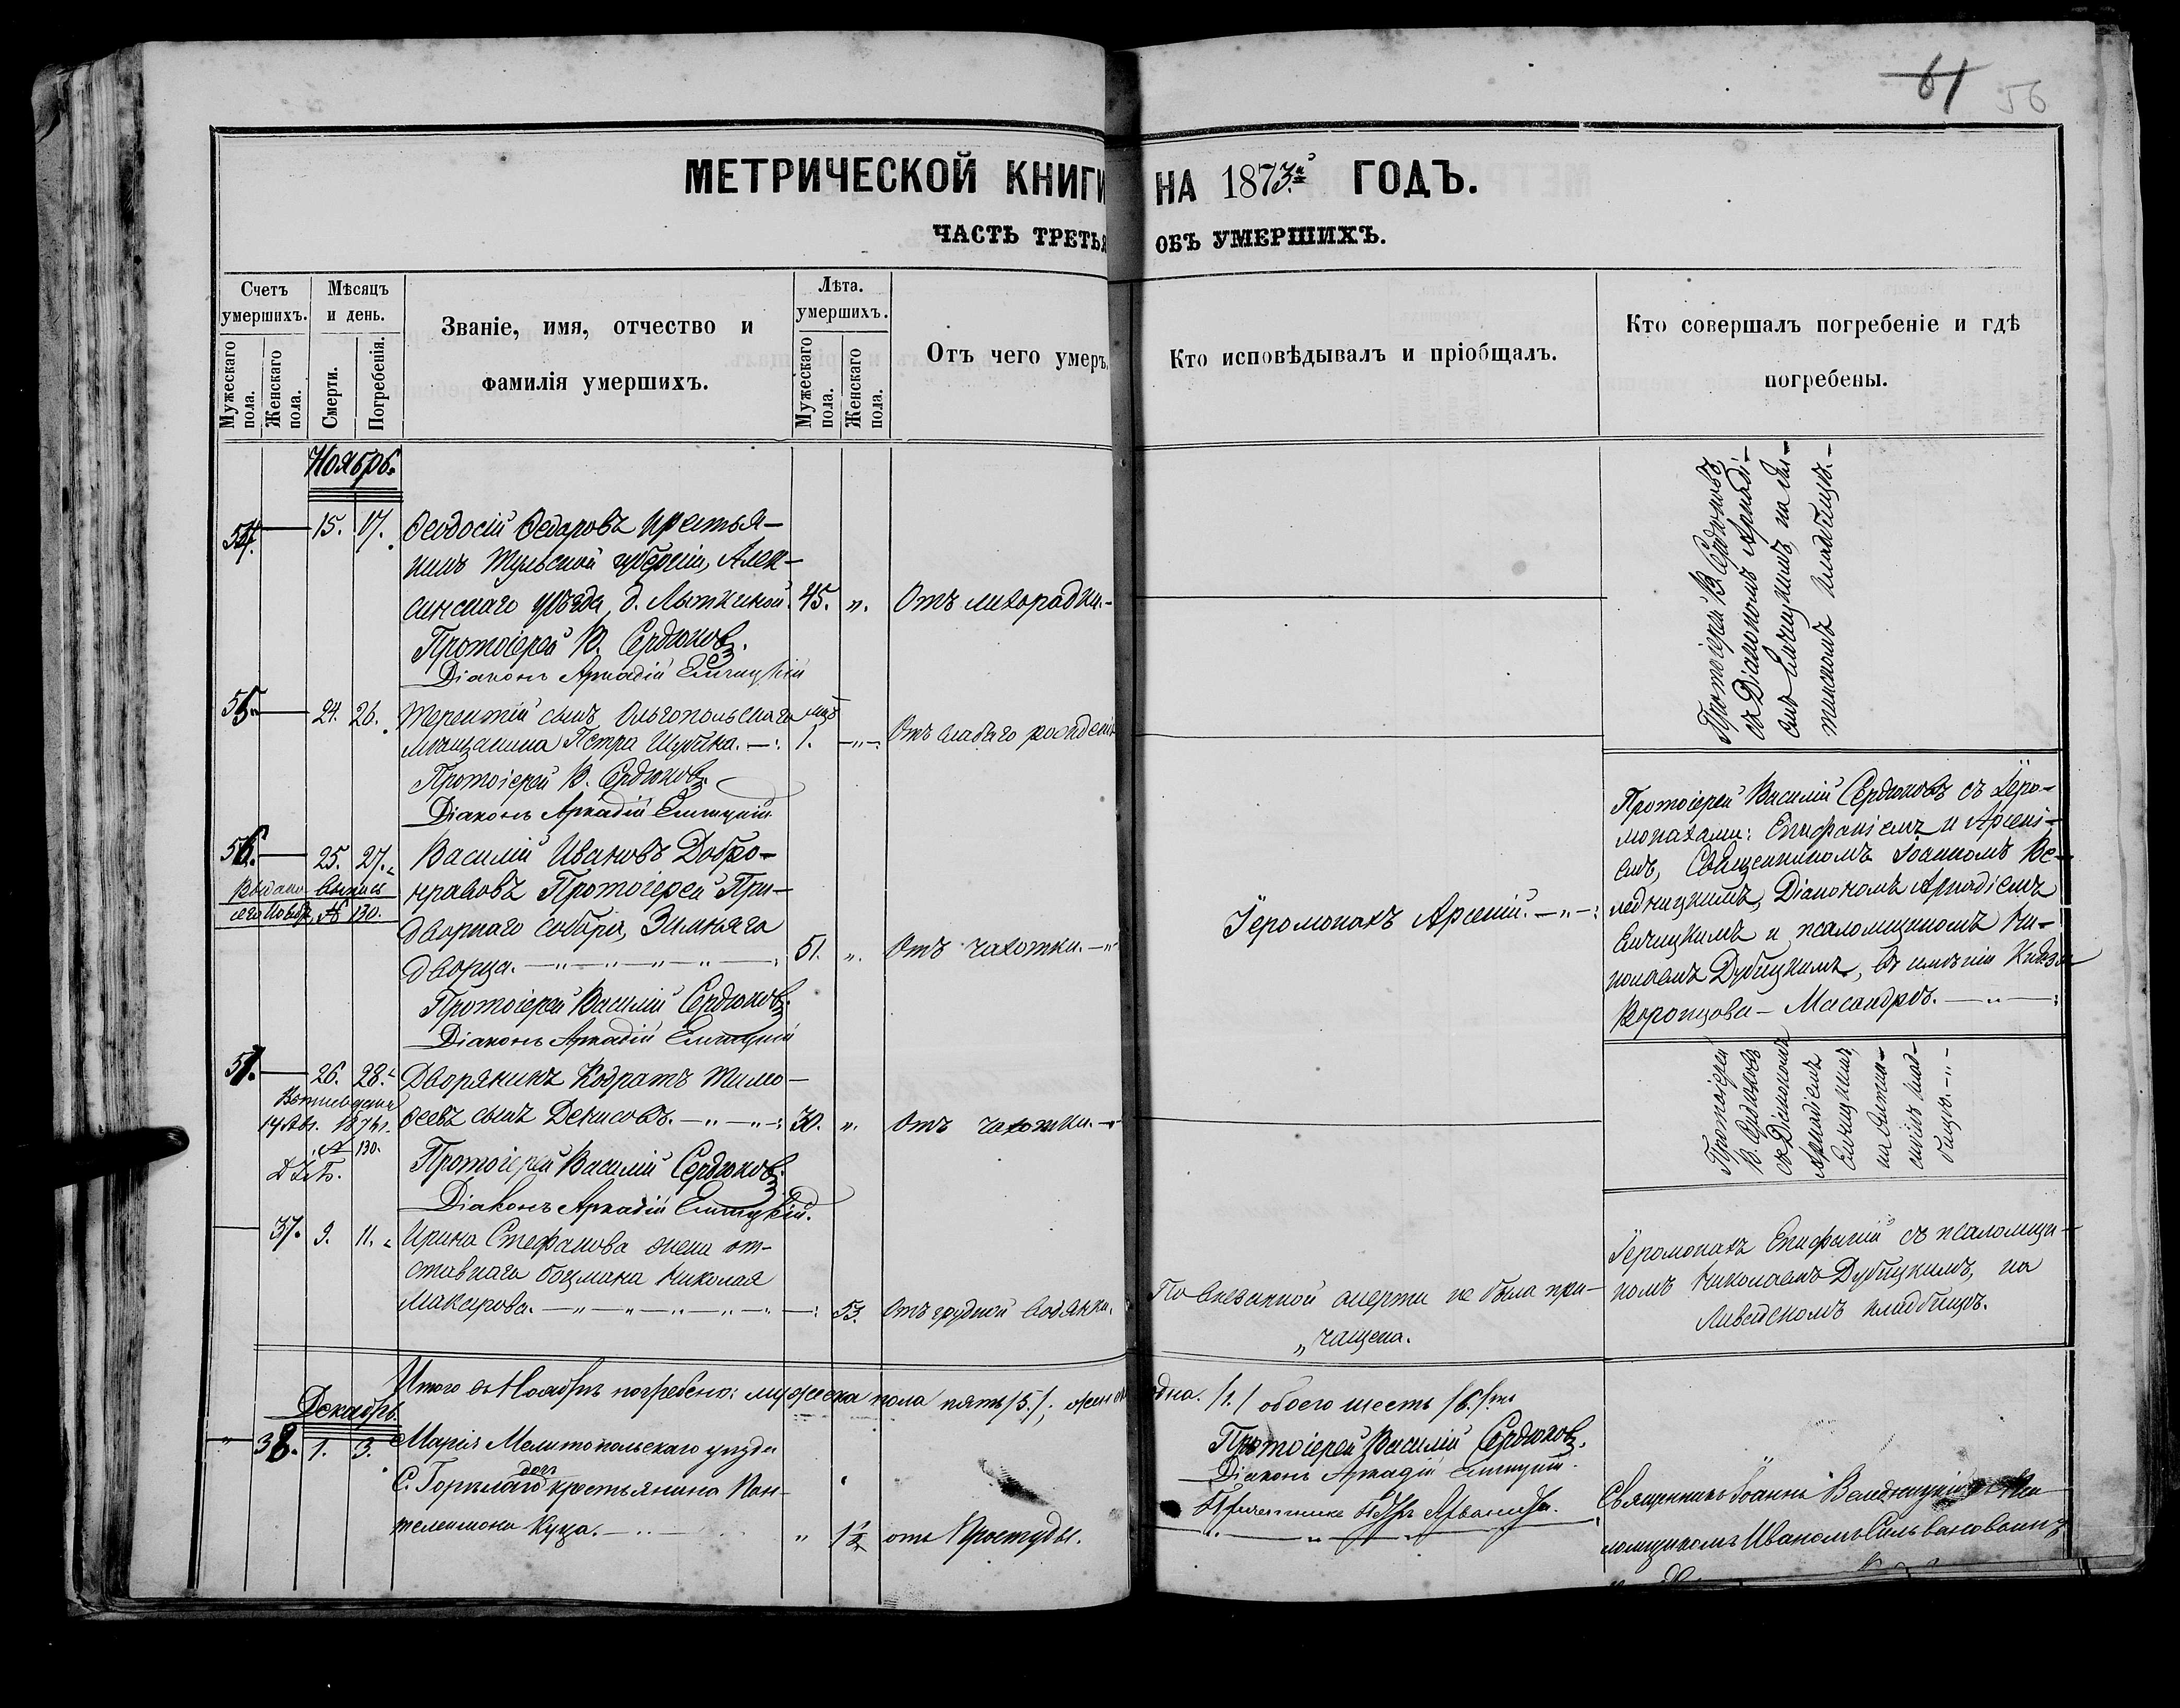 61 56
МЕТРИЧЕСКОЙ КНИГИ НА 1873й ГОДЪ.
ЧАСТЬ ТРЕТЬЯ ОБЪ УМЕРШИХЪ.
Счетъ умершихъ.
Мужескаго пола.
Женскаго пола.
Мѣсяцъ и день.
Смерти.
Погребенія.
Званіе, имя, отчество и
фамилія умершихъ.
Лѣта. умершихъ.
Мужескаго пола.
Женскаго пола.
Отъ чего умеръ.
Кто исповѣдывалъ и пріобщалъ.
Кто совершалъ погребеніе и гдѣ
погребены.
Ноябрь.
54. 15. 17. Ѳеодосій Ѳедоровъ крестья-
нинъ Тульской губерніи, Алек-
синскаго уѣзда, д. Лыткиной. 45. „. Отъ лихорадки.-
Протоіерей В. Сердюковъ.
Діаконъ Аркадій Елчицкій
Протоіерей В. Сердюковъ
съ Діакономъ Аркаді-
емъ Елчицкимъ, на
кладбищѣ.-
55. 24. 26. Терентій сынъ Ольгопольскаго
мѣщанина Петра Шубика.-: 1. мѣс. -„-. Отъ слабаго рожденія
Протоіерей В. Сердюковъ.
Діаконъ Аркадій Елчицкій.
56. 25. 27. Василій Ивановъ Добро-
нравовъ Протоіерей При-
дворнаго собора, Зимняго
дворца. -„-„-„-„-: 51. „. Отъ чахотки.-„-
Протоіерей Василій Сердюковъ.
Діаконъ Аркадій Елчицкій
Выдана выпись
№ 130.
Іеромонахъ Арсеній. -„-:
Протоіерей Василій Сердюковъ съ Іеро-
монахами: Епифаніемъ и Арсені-
емъ, Священникомъ Іоанномъ Ве-
ледницкимъ, Діакономъ Аркадіемъ
Елчицкимъ и псаломщикомъ Ни-
колаемъ Дубицкимъ, въ имѣніи Князя
Воронцова - Масандрѣ. -„-:
57. 26. 28. Дворянинъ Кодратъ Тимо-
ѳеевъ сынъ Денисовъ. -„-„-: 30. „. Отъ чахотки.-
Протоіерей Василій Сердюковъ.
Діаконъ Аркадій Елчицкій.
№ 130.
Протоіерей
В. Сердюковъ
съ Діакономъ
Аркадіемъ
Елчицкимъ,
на
клад-
бищѣ.-„-
37. 9. 11. Ирина Стефанова жена от-
ставнаго боцмана Николая
Макарова. -„-„-„-„-: 53. Отъ грудной водянки.
По внезапной смерти не была при-
„чащена.
Іеромонахъ Епифаній съ псаломщи-
комъ Николаемъ Дубицкимъ, на
Ливадскомъ кладбищѣ.
Итого въ Ноябрѣ погребено: мужеска пола пять /5./; женска одна. /1./ обоего шесть /6./
Протоіерей Василій Сердюковъ.
Діаконъ Аркадій Елчицкій.
Декабрь.
„ 38. 1. 3. Марія Мелитопольскаго уѣзда
С. Горѣлаго крестьянина дочь Пан-
телеимона Куца. „ 1½ отъ Простуды.
Священникъ Іоаннъ Веледницкій съ Пса-
ломщикомъ Иваномъ Сильвановымъ